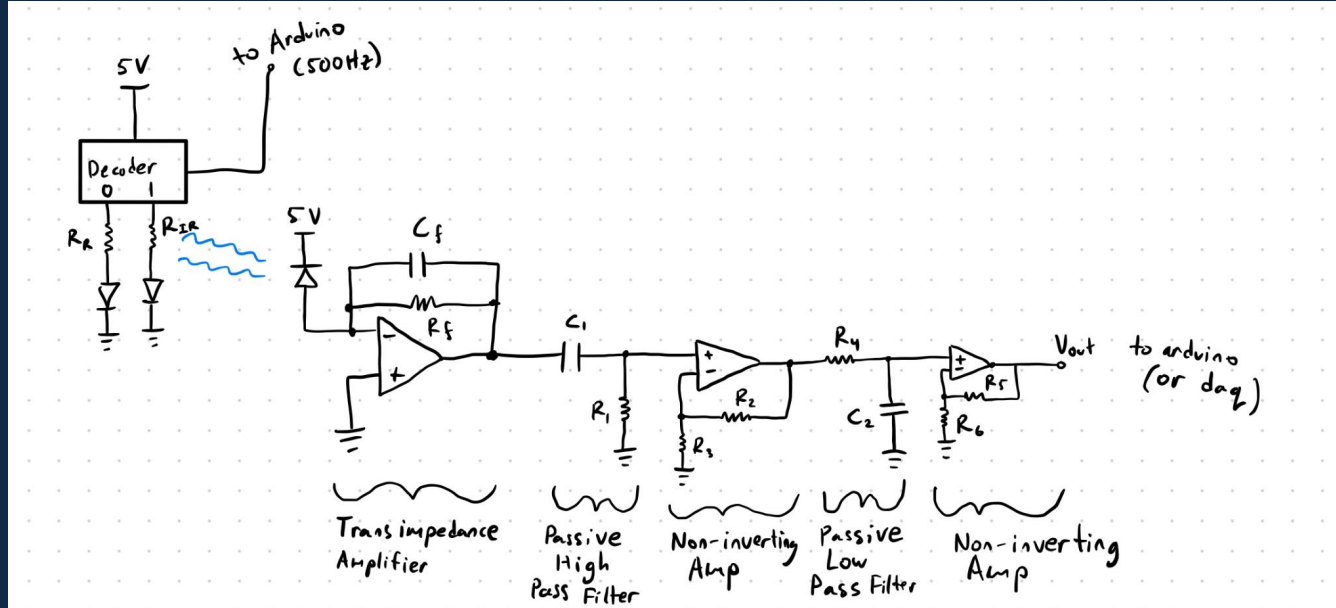 to Arduino
(500Hz)
5V
Decoder
0 1
R_R
R_IR
5V
C_f
R_f
-
+
C_1
R_1
+
-
R_2
R_3
R_4
C_2
+
-
R_5
R_6
Vout
to arduino
(or daq)
Transimpedance
Amplifier
Passive
High
Pass Filter
Non-inverting
Amp
Passive
Low
Pass Filter
Non-inverting
Amp